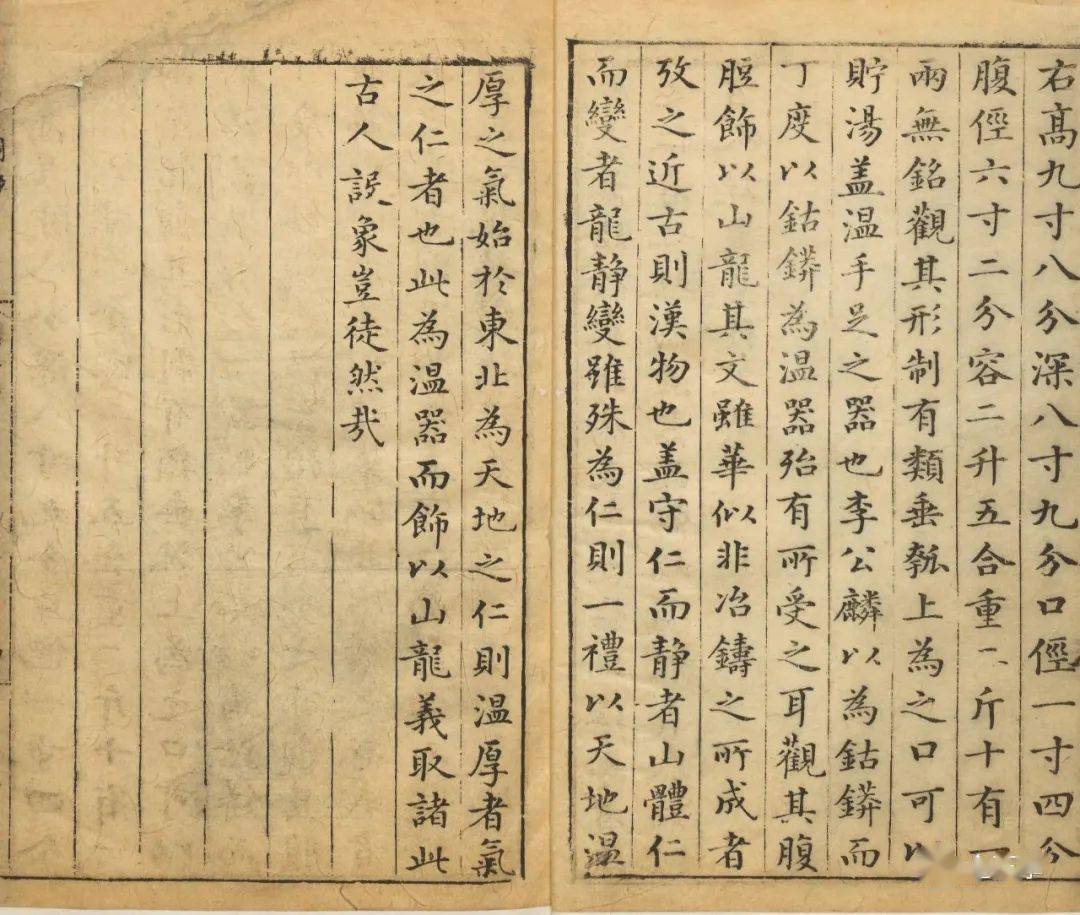 右高九寸八分深八寸九分口徑一寸四分
腹徑六寸二分容二升五合重一斤十有一
兩無銘觀其形制有類垂瓠上為之口可以
貯湯盖温手足之器也李公麟以為鈷鏻而
丁度以鈷鏻為温器殆有所受之耳觀其腹
脰飾以山龍其文雖華似非冶鑄之所成者
攷之近古則漢物也盖守仁而静者山體仁
而變者龍静變雖殊為仁則一禮以天地温
厚之氣始於東北為天地之仁則温厚者氣
之仁者也此為温器而飾以山龍義取諸此
古人設象豈徒然㢤